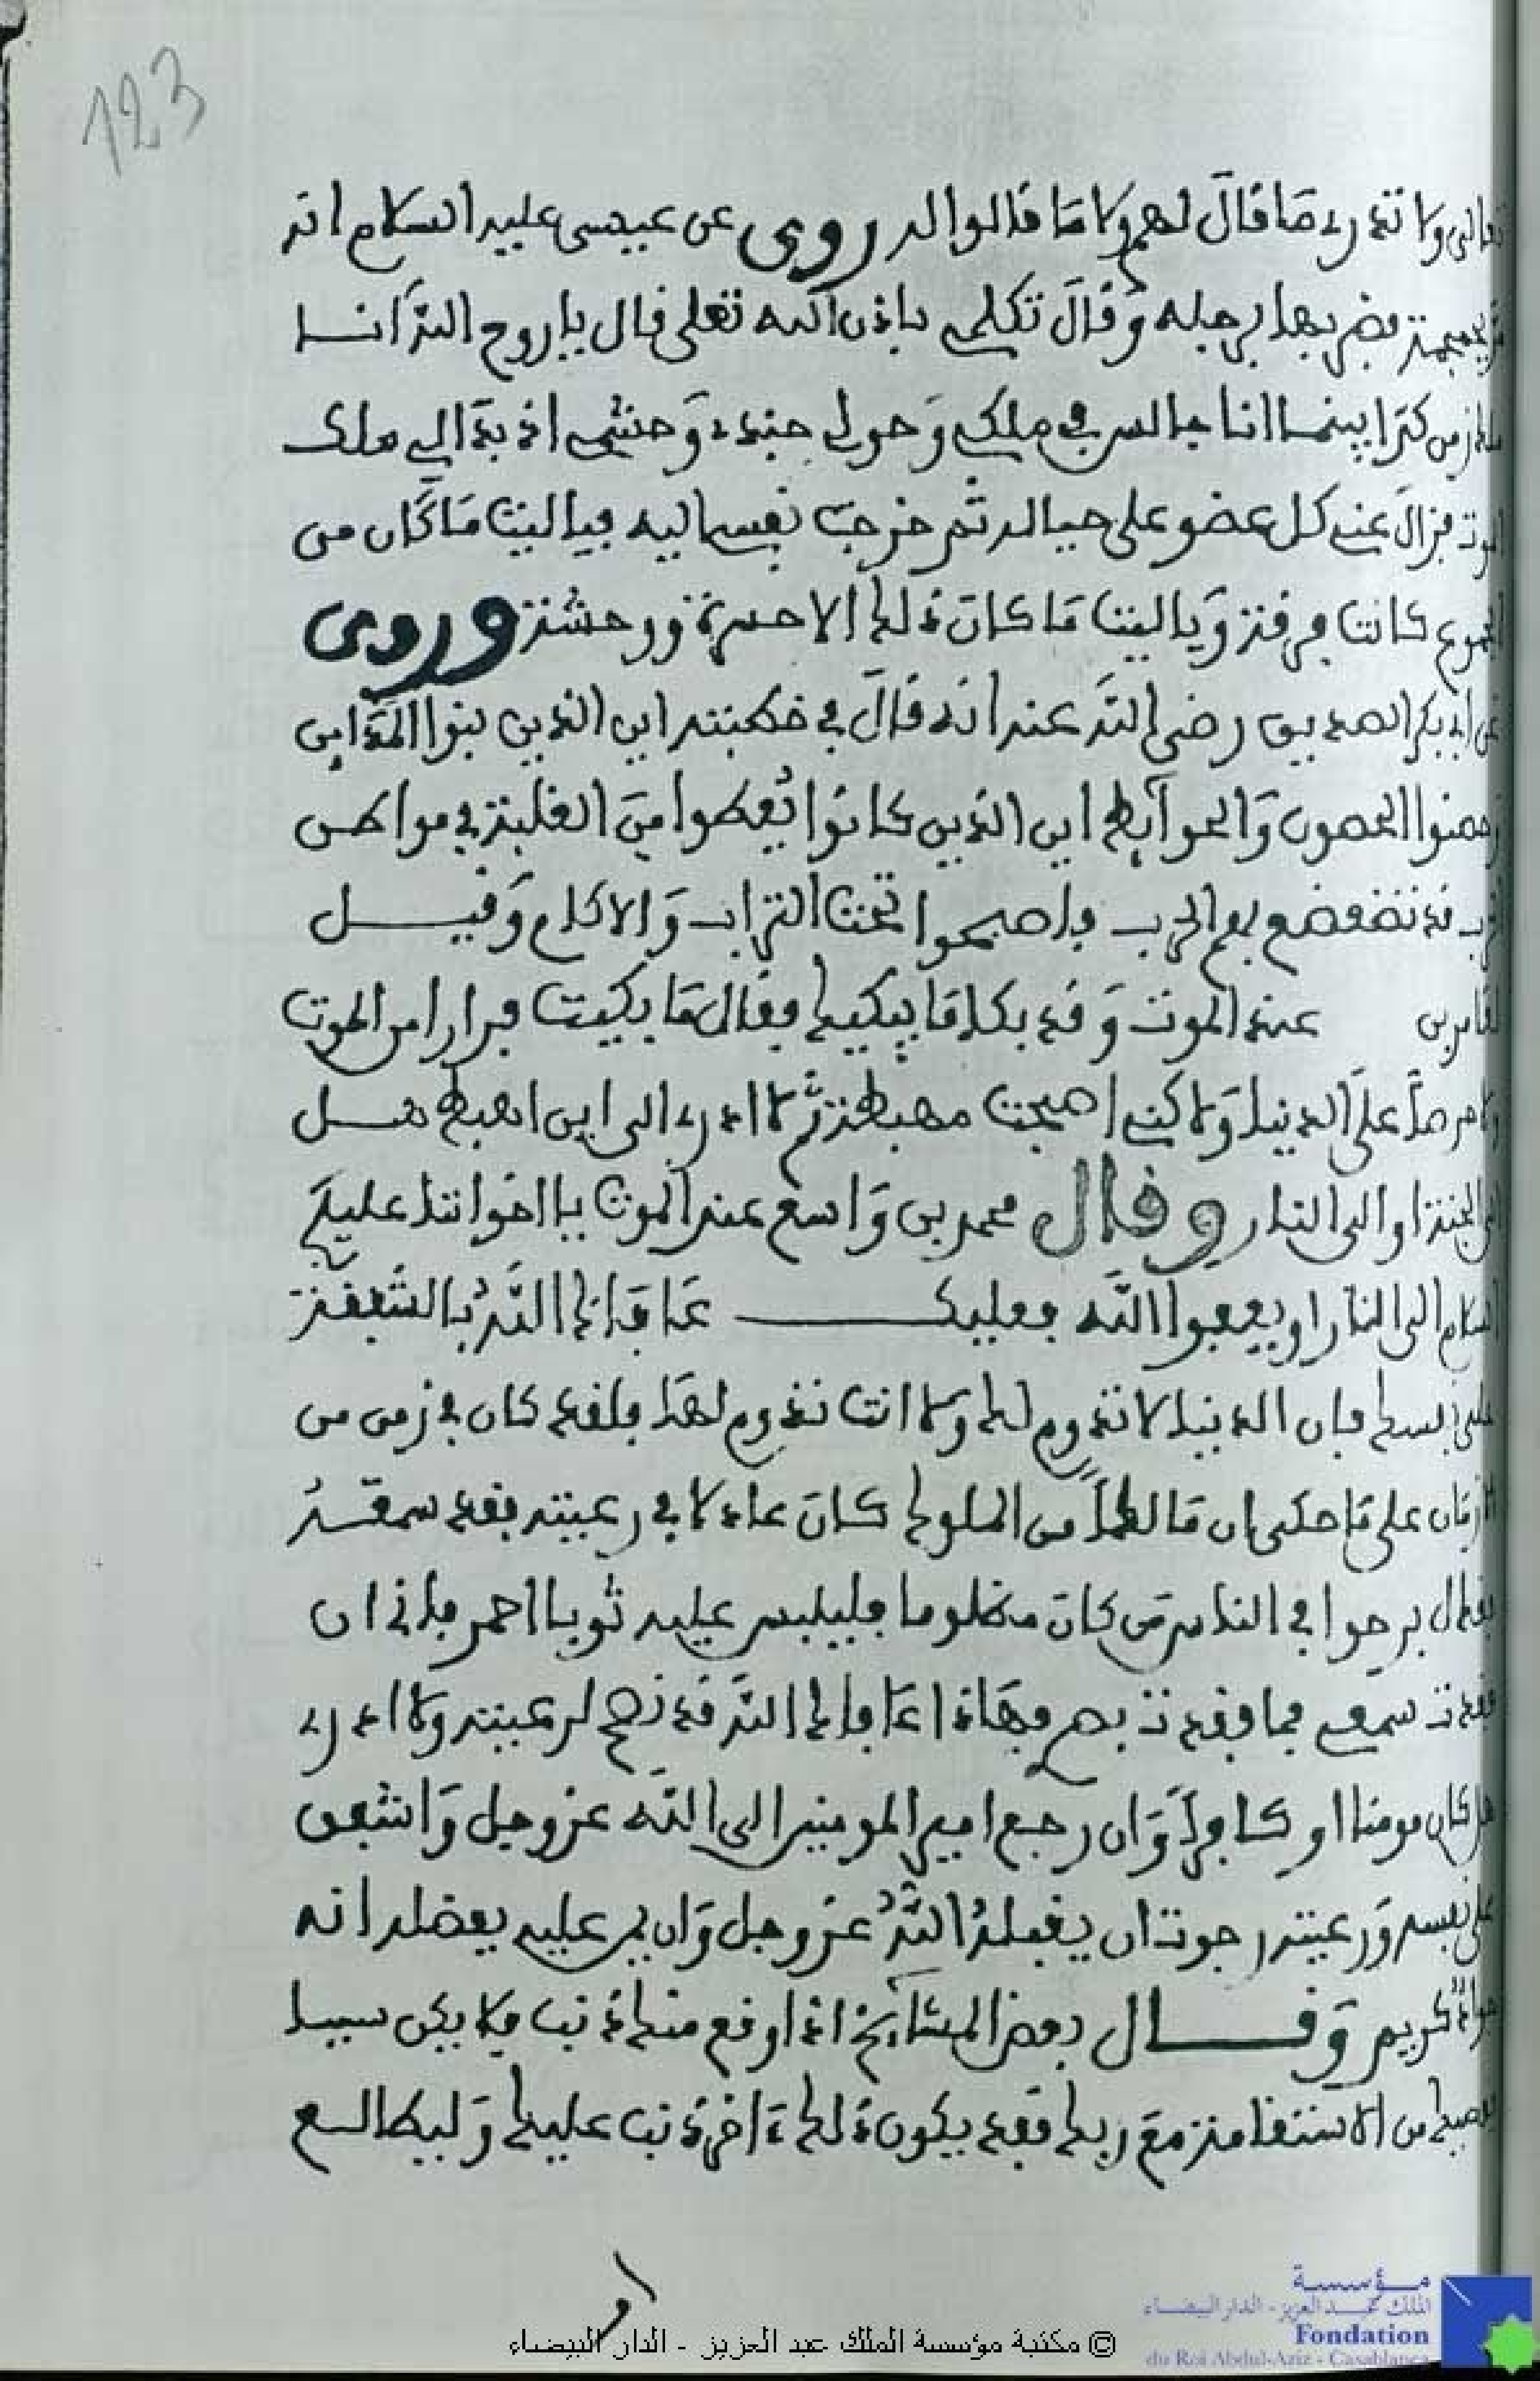 123
تعالى ولا تدري ما قال لهم ولا ما قالوا له روي عن عيسى عليه السلام انه
بجمجمة فضربها برجله وقال تكلمي باذن الله تعلى فال ياروح الله انا
ملك زمن كذا بينما انا جالس في ملكي وحولي جندي وحشمي اذ بدا لي ملك
الموت فزال عني كل عضو على حياله ثم خرجت نفسي اليه فياليت ما كان من
الجموع كانت فرقة وياليت ما كان ذلك الا حسرة ووحشة وروي
عن ابي بكر الصديق رضي الله عنه انه قال في خطبته اين الذين بنوا المداين
وحصنوا الحصون والحوايط اين الذين كانوا يعطوا من الغلبة في مواطن
الحرب قد تضعضع بهم الحرب فاصبحوا تحت التراب والاكام وقيل
لعامر بن عند الموت وقد بكا ما يبكيك فقال ما بكيت فرارا من الموت
ولا حرصا على الدنيا ولاكني اصبحت مهبطة لا ادري الى اين اهبط هل
الى الجنة او الى النار وقال محمد بن واسع عند الموت يا اخواننا عليكم
السلام الى النار او يعفوا الله فعليك عافاك الله بالشفقة
على نفسك فان الدنيا لا تدوم لك ولا انت تدوم لها فلقد كان في زمن من
الازمان على ما حكى ان مالكا من الملوك كان عادلا في رعيته ففقد سمعه
فقال برحوا في الناس من كان مظلوما فليلبس عليه ثوبا احمر فاني ان
فقدت سمعي فما فقدت بصري فهاذا عافاك الله قد نصح لرعيته ولا ادري
هل كان مومنا او كافرا وان رجع امير المومنين الى الله عز وجل واشفق
على نفسه ورعيته رجوت ان يقبله الله عز وجل وان يمن عليه بفضله انه
جواد كريم وقال بعض المشايخ اذا وقع منك ذنب فلا يكن سببا
من الاستقامة مع ربك فقد يكون ذلك ءاخر ذنب عليك وليطالع
او
© مكتبة مؤسسة الملك عبد العزيز - الدار البيضاء
مؤسسة
الملك عبد العزيز - الدار البيضاء
Fondation
du Roi Abdul-Aziz - Casablanca